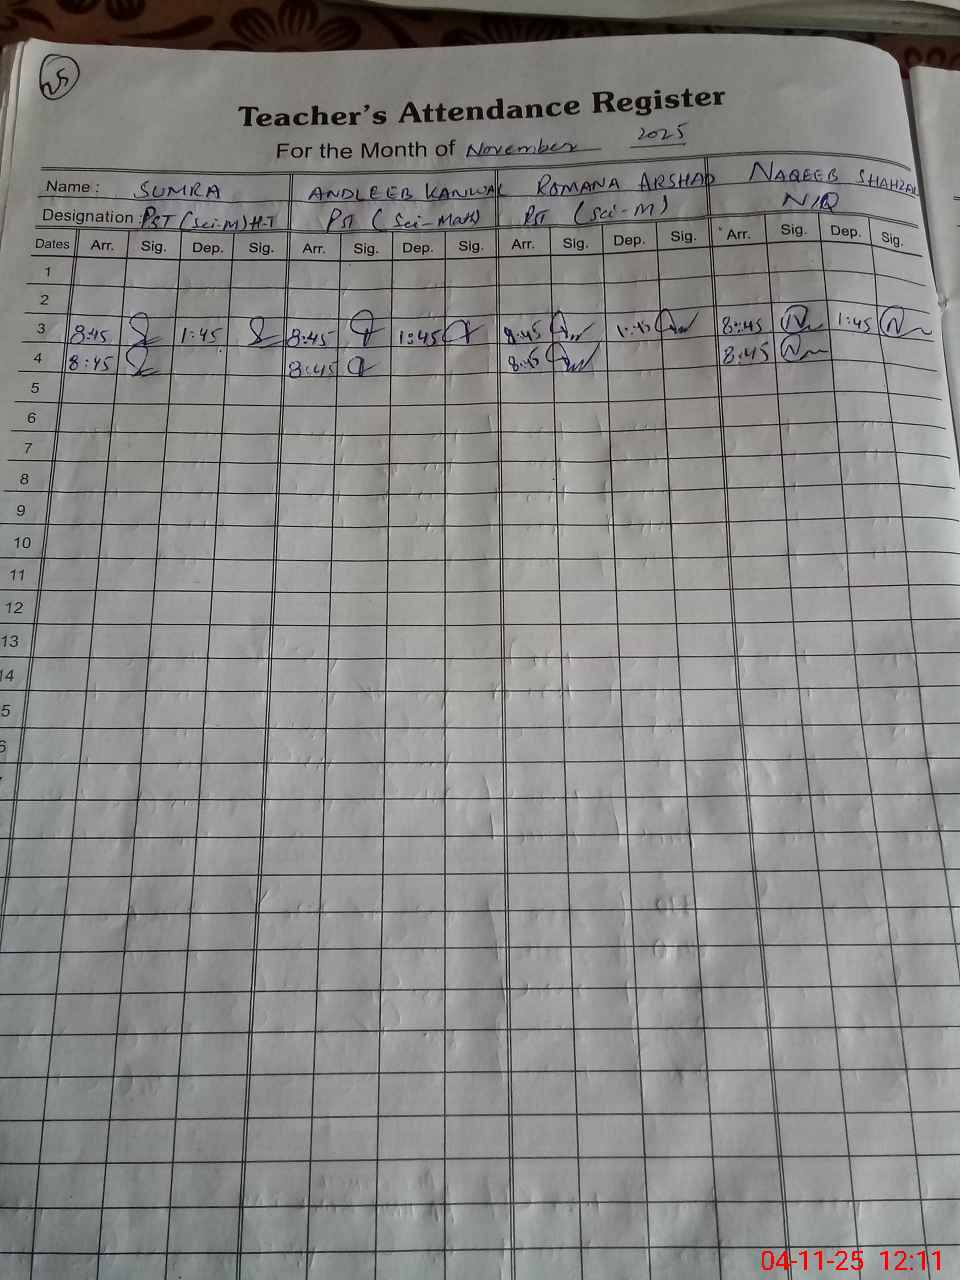 25
Teacher's Attendance Register
For the Month of November 2025
Name : SUMRA ANDLEEB KANWAL ROMANA ARSHAD NAQEEB SHAHZAD
Designation : PST (Sci-M) H-T PST (Sci-Math) PST (Sci-M) N/Q
Dates Arr. Sig. Dep. Sig. Arr. Sig. Dep. Sig. Arr. Sig. Dep. Sig. Arr. Sig. Dep. Sig.
1
2
3 8:45 1:45 8:45 1:45 8:45 1:45 8:45 1:45
4 8:45 8:45 8:45 8:45
5
6
7
8
9
10
11
12
13
14
5
6
04-11-25 12:11